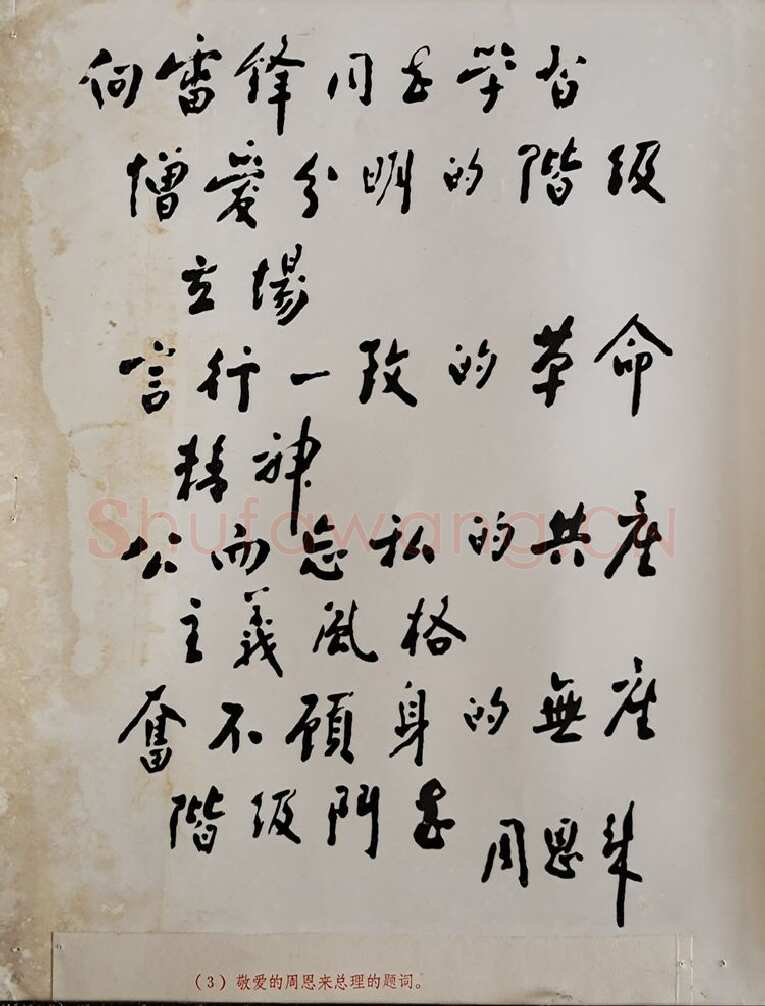 向雷锋同志学習
憎愛分明的階级
立場
言行一致的革命
精神
公而忘私的共産
主義風格
奮不顧身的無産
階级鬥志
周恩来
Shufawang.CN
(3)敬爱的周恩来总理的题词。